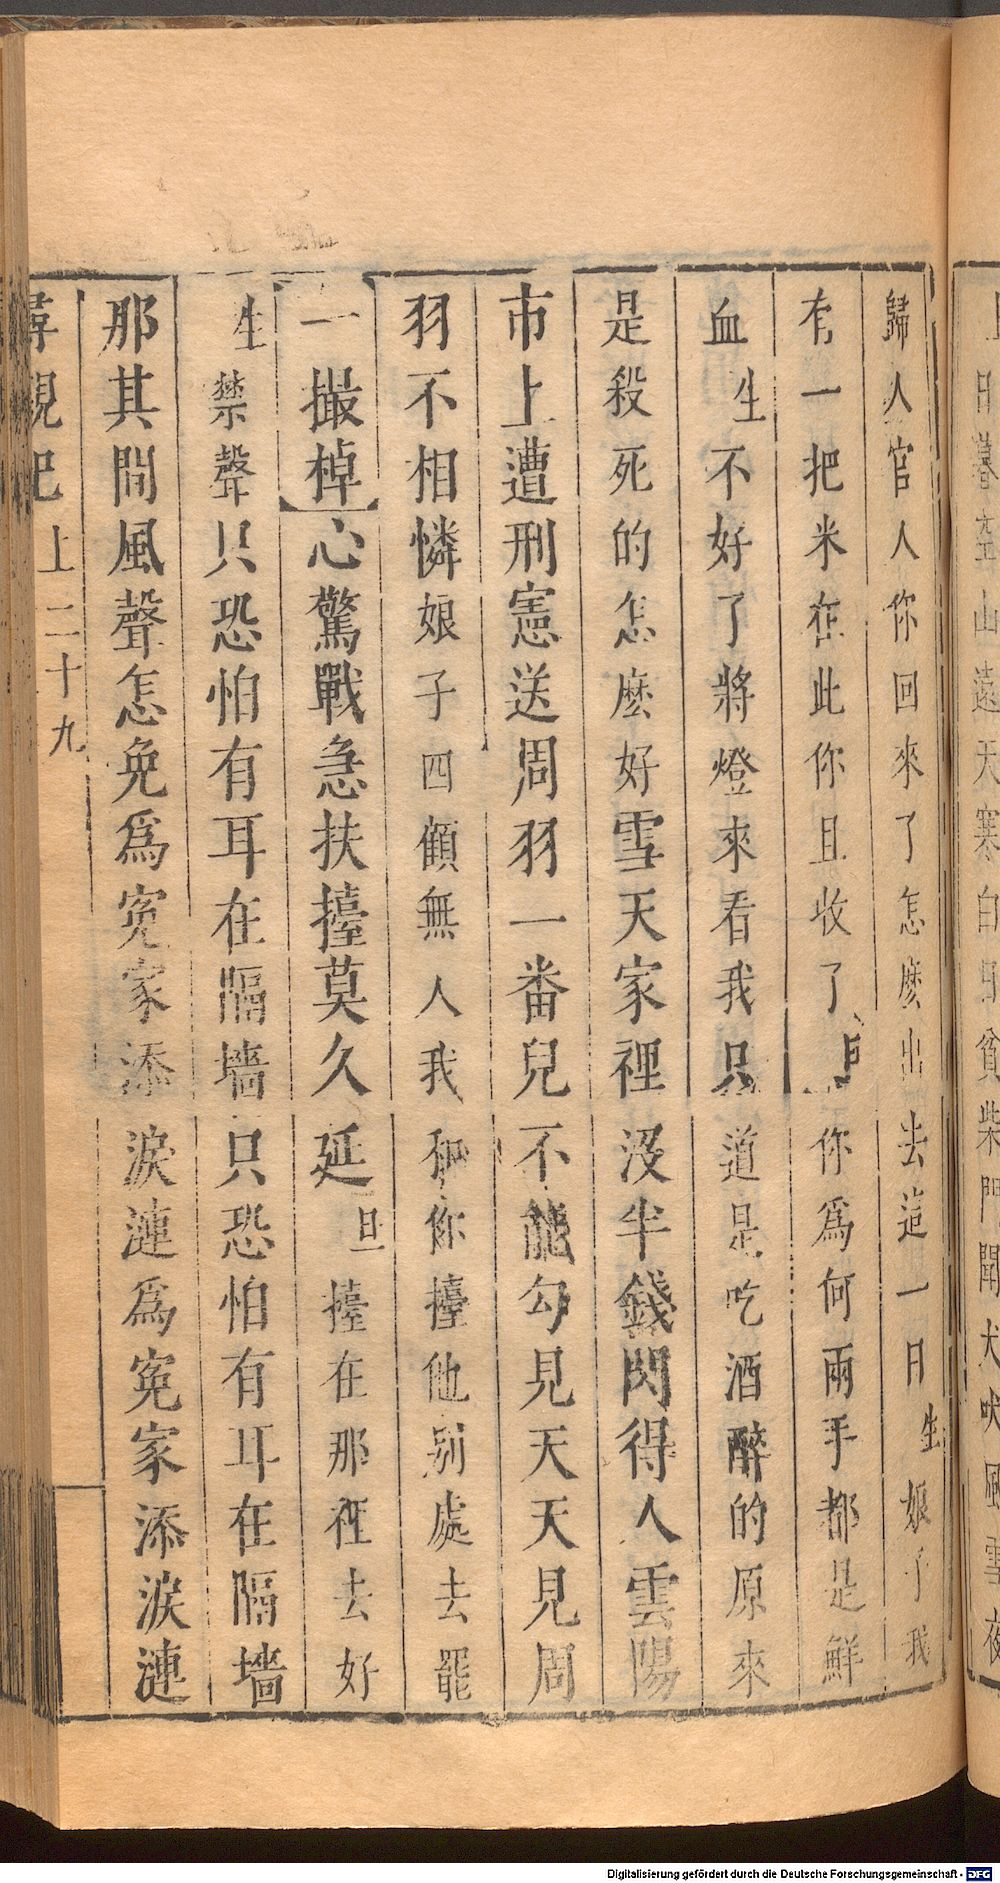 上日暮空山遠天寒白屋貧柴門聞犬吠風雪夜
歸人官人你回來了怎麽出去這一日生娘子我
有一把米在此你且收了旦你爲何兩手都是鮮
血生不好了將燈來看我只道是吃酒醉的原來
是殺死的怎麽好雪天家裡沒半錢閃得人雲陽
市上遭刑憲送周羽一番兒不能勾見天天見周
羽不相憐娘子四顧無人我和你擡他別處去罷
一撮棹心驚戰急扶擡莫久延旦擡在那裡去好
生禁聲只恐怕有耳在隔墻只恐怕有耳在隔墻
那其間風聲怎免爲寃家添淚漣爲寃家添淚漣
尋親記上二十九
Digitalisierung gefördert durch die Deutsche Forschungsgemeinschaft - DFG